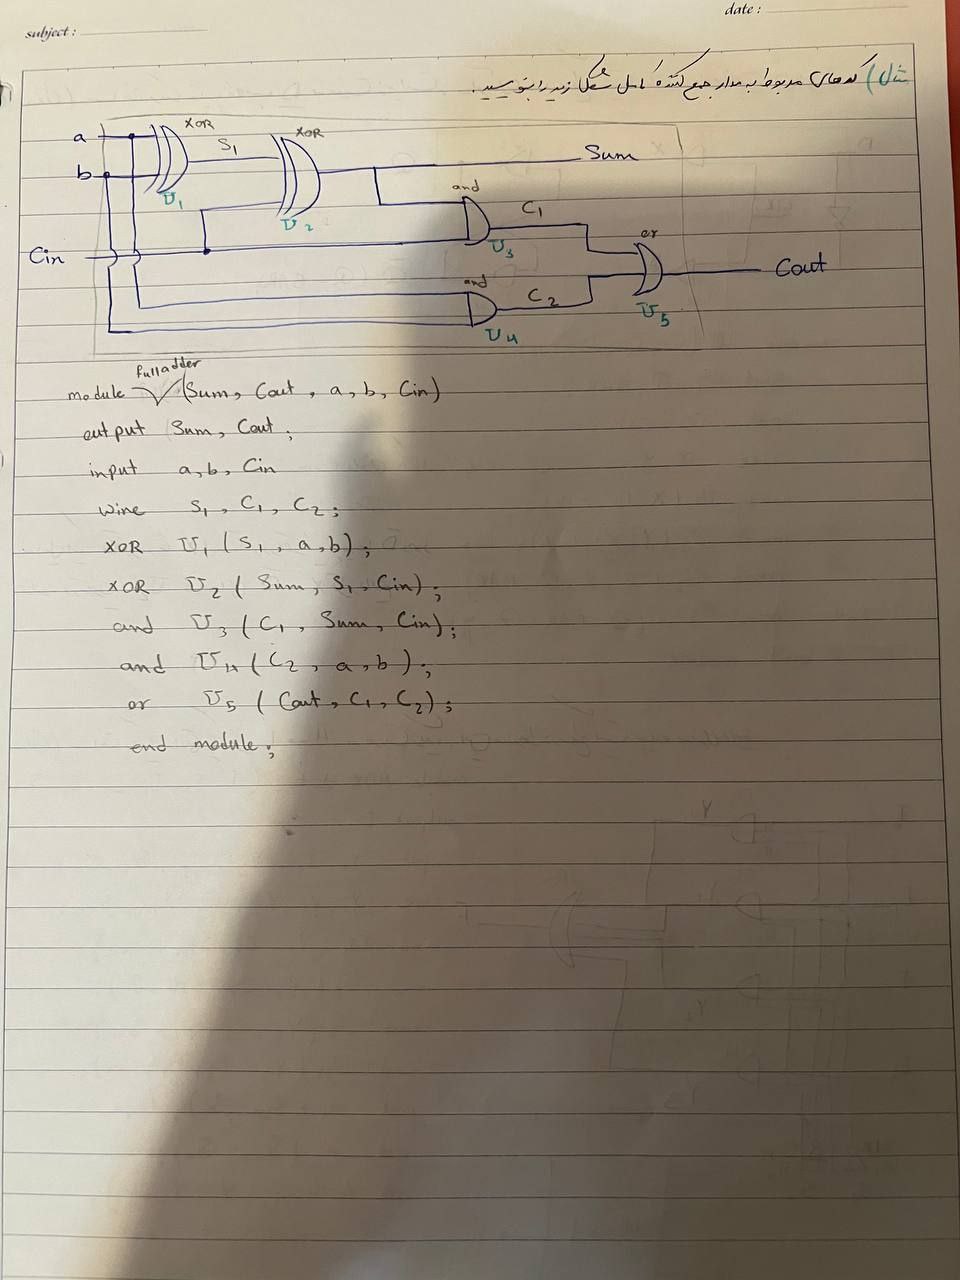 date :
subject :
مثال) کدهای مربوط به مدار جمع کننده کامل شکل زیر را بنویسید.
XOR
XOR
a
S1
Sum
b
and
U1
C1
U2
or
Cin
U3
Cout
and
C2
U5
U4
full adder
module (Sum, Cout, a, b, Cin)
output Sum, Cout;
input a, b, Cin
wire S1, C1, C2;
XOR U1 (S1, a, b);
XOR U2 (Sum, S1, Cin);
and U3 (C1, Sum, Cin);
and U4 (C2, a, b);
or U5 (Cout, C1, C2);
end module;